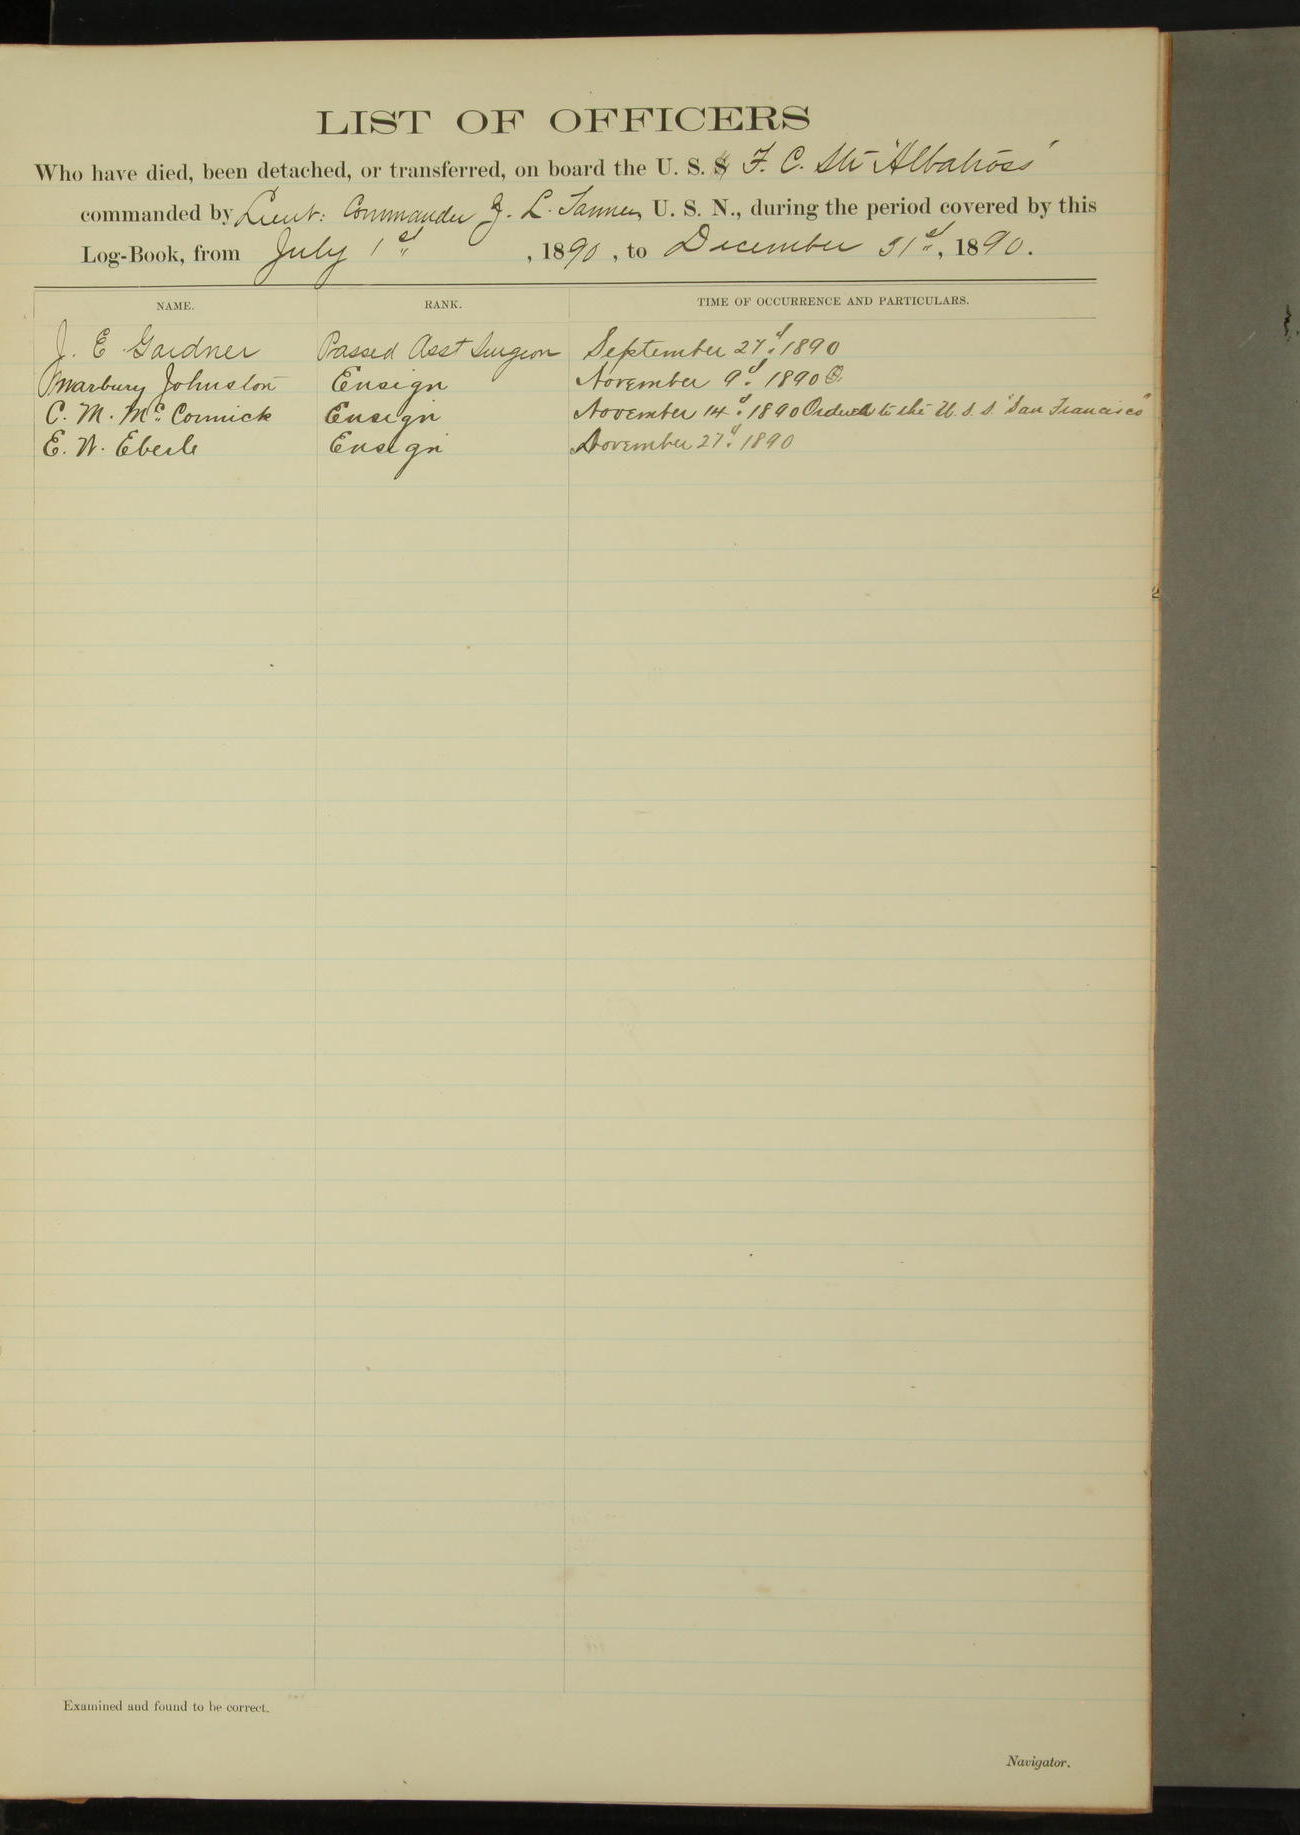 LIST OF OFFICERS
Who have died, been detached, or transferred, on board the U. S. S F. C. Str "Albatross"
commanded by Lieut: Commander Z. L. Tanner, U. S. N., during the period covered by this
Log-Book, from July 1st, 1890, to December 31st, 1890.
NAME. RANK. TIME OF OCCURRENCE AND PARTICULARS.
J. E Gardner Passed Asst Surgeon September 27d. 1890
Marbury Johnston Ensign November 9d. 1890
C. M. Mc. Cormick Ensign November 14d. 1890 Ordered to the U. S. S. "San Francisco"
E. W. Eberle Ensign November 27d. 1890
Examined and found to be correct.
Navigator.